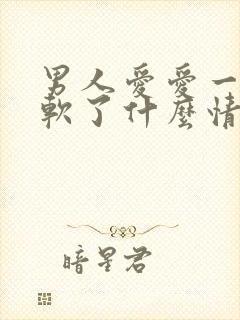 男人愛愛一
軟了什麼情
暗星君